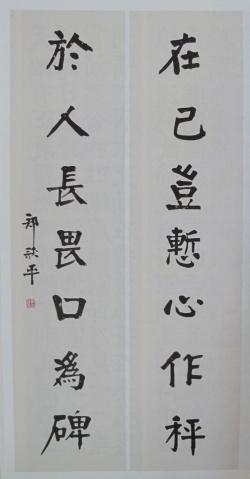 在己豈慙心作秤
於人長畏口為碑